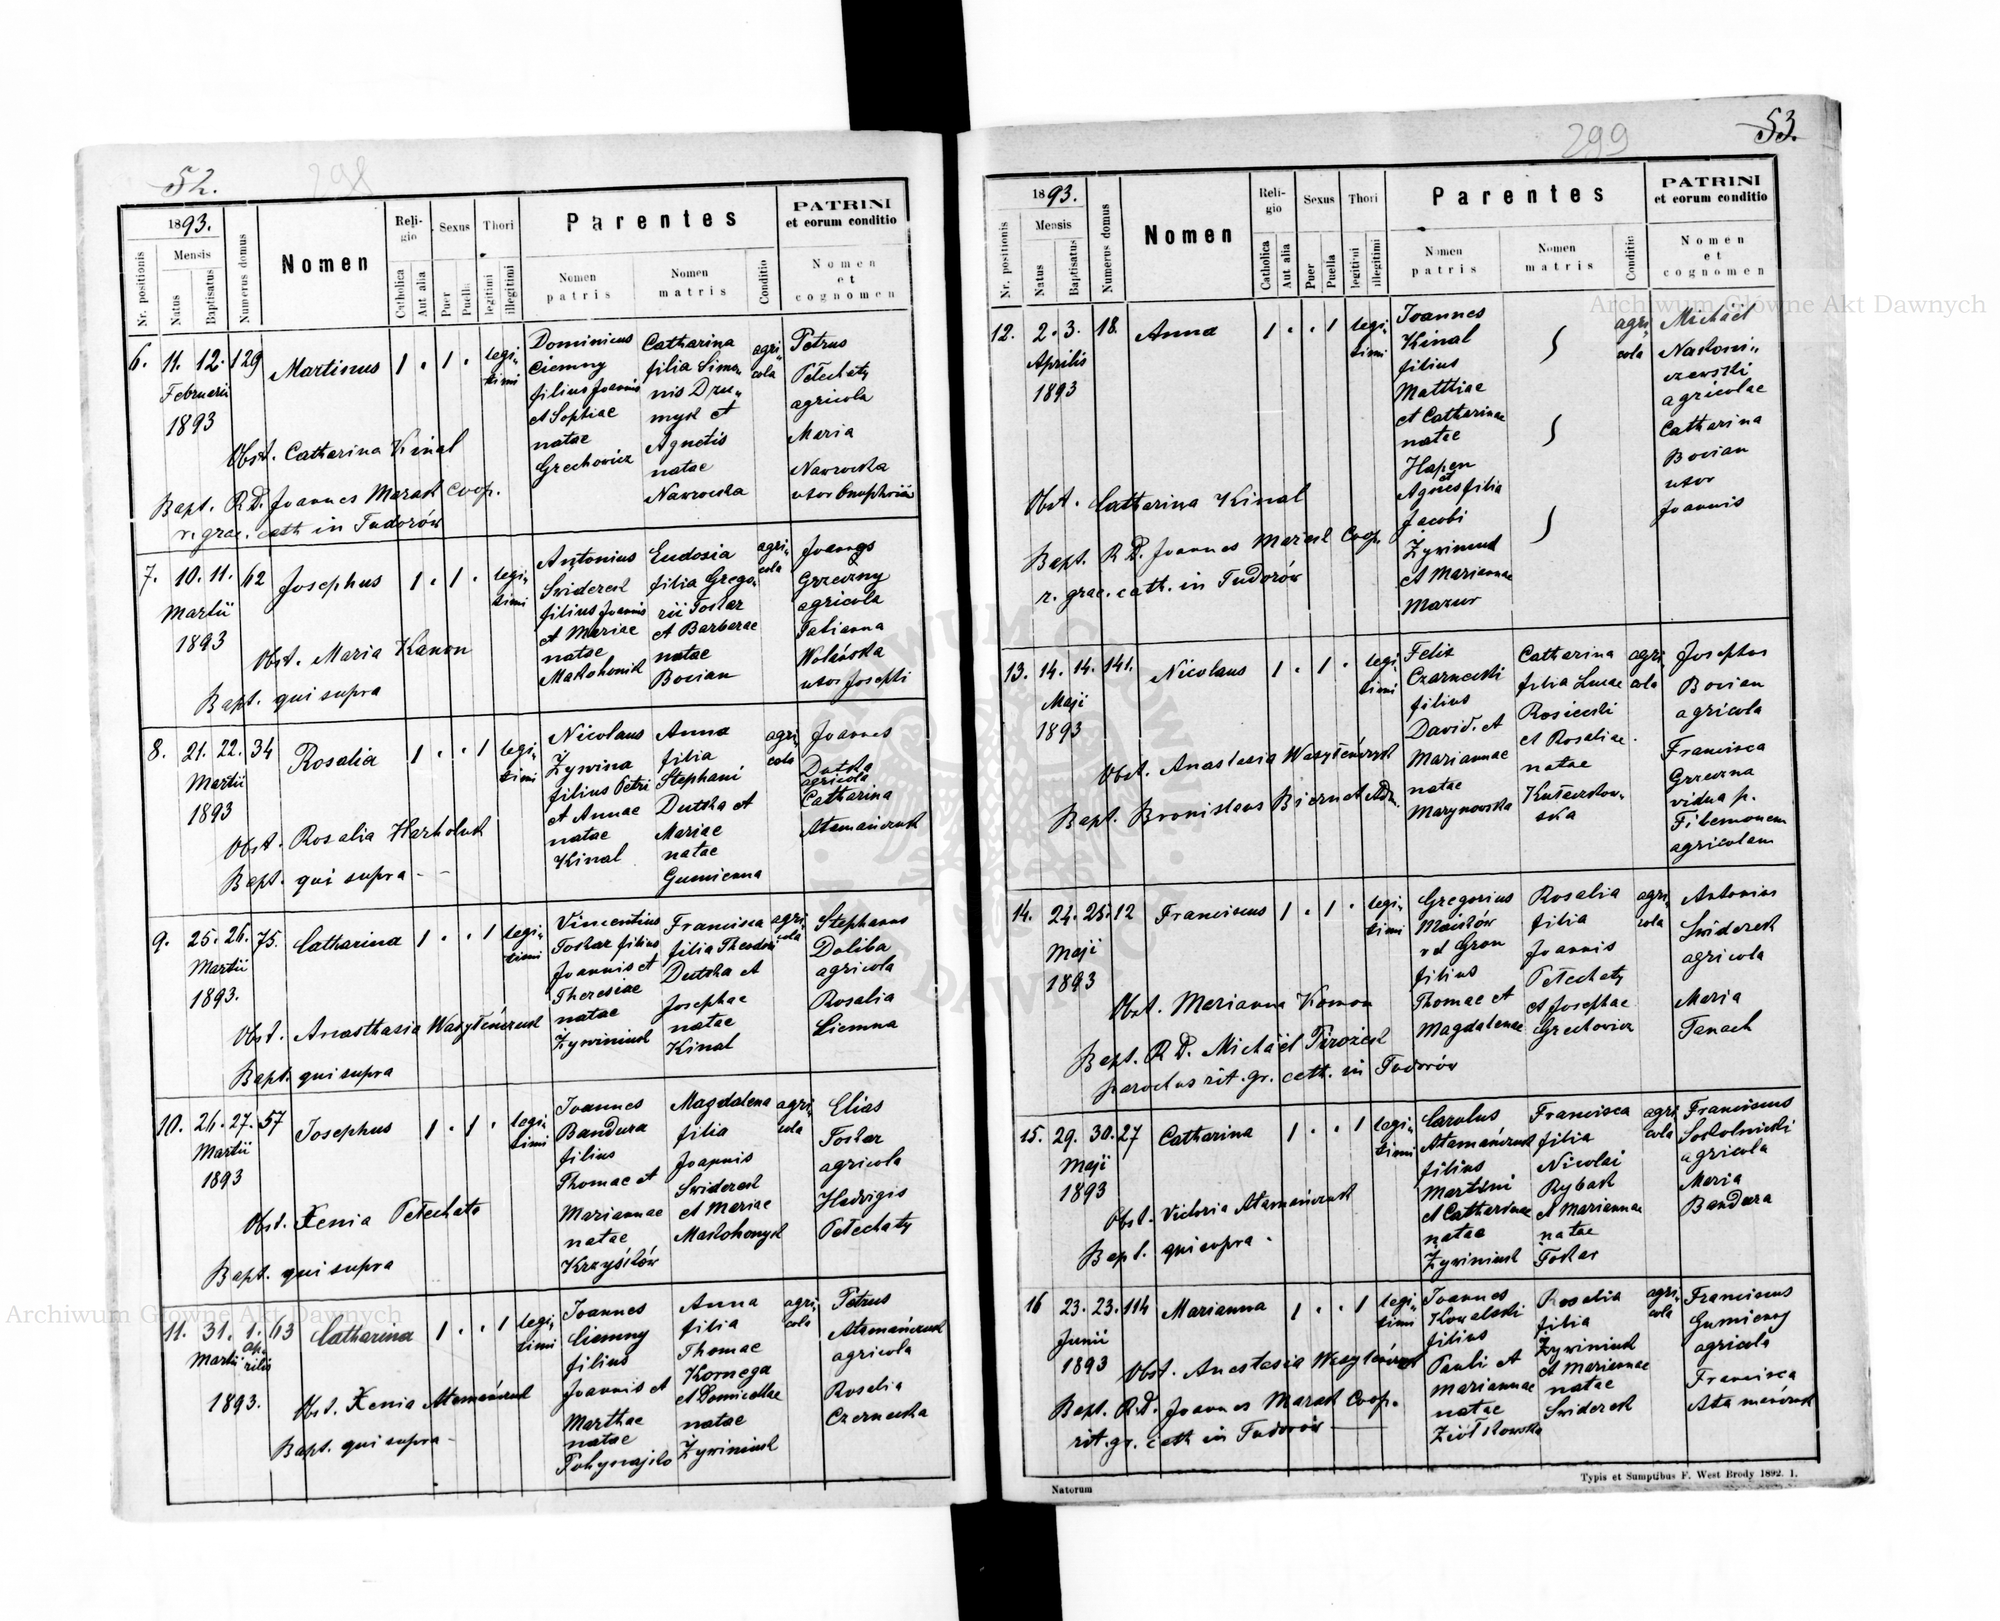 52.
298
1893.
Nr. positionis
Mensis
Natus
Baptisatus
Numerus domus
Nomen
Religio
Catholica
Aut alia
Sexus
Puer
Puella
Thori
legitimi
illegitimi
Parentes
Nomen patris
Nomen matris
Conditio
PATRINI
et eorum conditio
Nomen
et
cognomen
6. 11. 12. 129 Martinus 1 . 1 . legi„
timi
Februarii
1893
Dominicus
Ciemny
filius Joannis
et Sophiae
natae
Grechowicz
Catharina
filia Simo„
nis Dzu„
mysk et
Agnetis
natae
Nawrocka
agri„
cola
Petrus
Petechaty
agricola
Maria
Nawrocka
uxor Onuphrii
Obst. Catharina Kinal
Bapt. R.D. Joannes Marak Coop.
r. grae. cath in Tudorów
7. 10. 11. 62 Josephus 1 . 1 . legi„
timi
Martii
1893
Antonius
Swiderek
filius Joannis
et Mariae
natae
Eudosia
filia Grego„
rii Tokar
et Barbarae
natae
Bocian
agri„
cola
Joannes
Grzeczny
agricola
Tatianna
Wolańska
uxor Josephi
Obst. Maria Kanon
Bapt. qui supra
8. 21. 22. 34 Rosalia 1 . . 1 legi„
timi
Martii
1893
Nicolaus
Żywina
filius Petri
et Annae
natae
Kinal
Anna
filia
Stephani
Dutka et
Mariae
natae
Gumienna
agri„
cola
Joannes
Dutka
agricola
Catharina
Atamańczuk
Obst. Rosalia Harholuk
Bapt. qui supra - -
9. 25. 26. 75. Catharina 1 . . 1 legi„
timi
Martii
1893.
Vincentius
Tokar filius
Joannis et
Theresiae
natae
Żywiniuk
Francisca
filia Theodori
Dutka et
Josephae
natae
Kinal
agri„
cola
Stephanus
Doliba
agricola
Rosalia
Ciemna
Obst. Anasthasia Wasyłeńczuk
Bapt. qui supra
10. 26. 27. 57 Josephus 1 . 1 . legi„
timi
Martii
1893
Joannes
Bandura
filius
Thomae et
Mariannae
natae
Krzyśków
Magdalena
filia
Joannis
Swiderek
et Mariae
Makohonyk
agri„
cola
Elias
Tokar
agricola
Hedvigis
Petechaty
Obst. Xenia Petechata
Bapt. qui supra
11. 31. 1. 63 Catharina 1 . . 1 legi„
timi
Martii Aprilis
1893.
Joannes
Ciemny
filius
Joannis et
Marthae
natae
Anna
filia
Thomae
Kornega
et Domicellae
natae
Żywiniuk
agri„
cola
Petrus
Atamańczuk
agricola
Rosalia
Czarnecka
Obst. Xenia Atamańczuk
Bapt. qui supra -
53.
299
1893.
Nr. positionis
Mensis
Natus
Baptisatus
Numerus domus
Nomen
Religio
Catholica
Aut alia
Sexus
Puer
Puella
Thori
legitimi
illegitimi
Parentes
Nomen patris
Nomen matris
Conditio
PATRINI
et eorum conditio
Nomen
et
cognomen
12. 2. 3. 18. Anna 1 . . 1 legi„
timi
Aprilis
1893
Joannes
Kinal
filius
Matthiae
et Catharinae
natae
Hapen
et
Agnes filia
Jacobi
Żywiniuk
et Mariannae
Mazur
agri„
cola
Michael
Nakoni„
czewski
agricolae
Catharina
Bocian
uxor
Joannis
Obst. Catharina Kinal
Bapt. R.D. Joannes Marak Coop.
r. grae. cath. in Tudorów
13. 14. 14. 141. Nicolaus 1 . 1 . legi„
timi
Maji
1893
Felix
Czarnecki
filius
David. et
Mariannae
natae
Marynowska
Catharina
filia Lucae
Rosiecki
et Rosaliae
natae
agri
cola
Josephus
Bocian
agricola
Francisca
Grzeczna
vidua p.
Filemonem
agricolam
Obst. Anastasia Wasyłeńczuk
Bapt. Bronislaus Biernat Adm.
14. 24. 25. 12 Franciscus 1 . 1 . legi„
timi
Maji
1893
Gregorius
filius
Thomae et
Magdalenae
Rosalia
filia
Joannis
Petechaty
et Josephae
Grechowicz
agri
cola
Antonius
Świderek
agricola
Maria
Tanach
Obst. Marianna Komon
Bapt. R.D. Michael Pirożek
parochus rit. gr. cath. in Tudorów
15. 29. 30. 27 Catharina 1 . . 1 legi„
timi
Maji
1893
Carolus
Atamańczuk
filius
Martini
et Catharinae
natae
Żywiniuk
Francisca
filia
Nicolai
Rybak
et Mariannae
natae
Tokar
agri
cola
Franciscus
Sokolnicki
agricola
Maria
Bandura
Obst. Victoria Atamańczuk
Bapt. qui supra -
16 23. 23. 114 Marianna 1 . . 1 legi„
timi
Junii
1893
Joannes
Kowalski
filius
Pauli et
Mariannae
natae
Ziółkowska
Rosalia
filia
Żywiniuk
et Mariannae
natae
Swiderek
agri„
cola
Franciscus
Gumienny
agricola
Francisca
Atamańczuk
Obst. Anastasia Wasyłeńczuk
Bapt. R.D. Joannes Marak Coop.
rit. gr. cath in Tudorów
Natorum
Typis et Sumptibus F. West Brody 1892. 1.
Archiwum Główne Akt Dawnych
Archiwum Główne Akt Dawnych